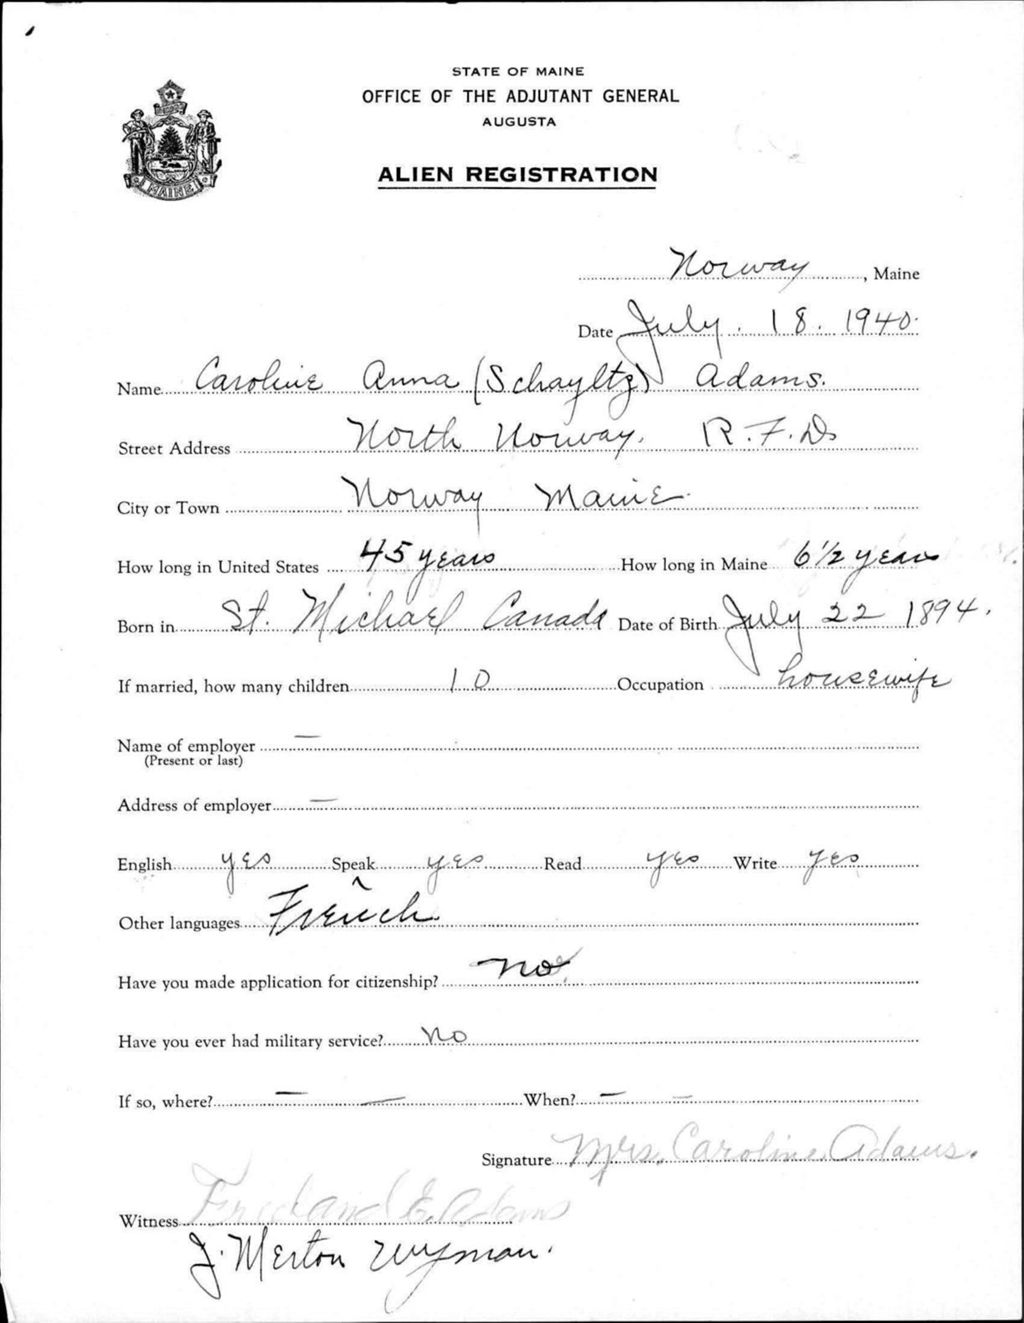 STATE OF MAINE
OFFICE OF THE ADJUTANT GENERAL
AUGUSTA
ALIEN REGISTRATION
MAINE
Norway, Maine
Date July. 18. 1940.
Name Caroline Anna (Schayltz) Adams.
Street Address North Norway. R.F.D.
City or Town Norway Maine.
How long in United States 45 years How long in Maine 6 1/2 years
Born in St. Michael Canada Date of Birth July 22 1894.
If married, how many children 10 Occupation housewife
Name of employer —
(Present or last)
Address of employer —
English yes Speak yes Read yes Write yes
Other languages French.
Have you made application for citizenship? no.
Have you ever had military service? no
If so, where? — — When? — —
Signature Mrs. Caroline Adams.
Witness E. Adams
J. Merton Wyman.